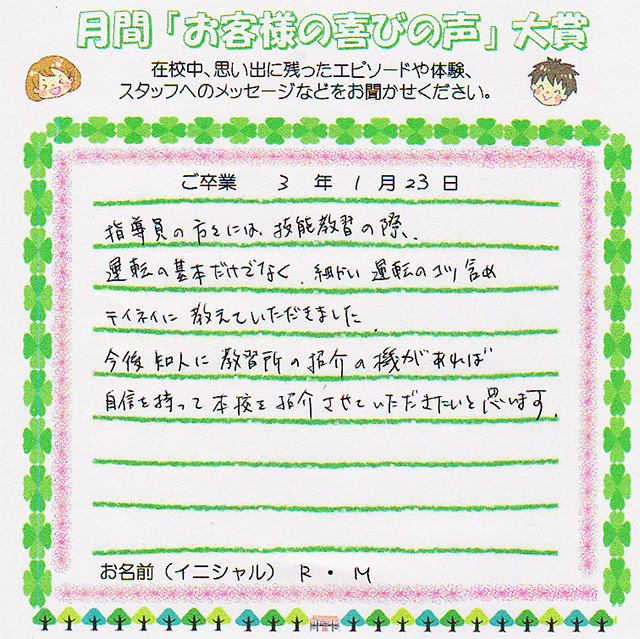 月間「お客様の喜びの声」大賞
在校中、思い出に残ったエピソードや体験、
スタッフへのメッセージなどをお聞かせください。
ご卒業 3 年 1 月 23 日
指導員の方々には、技能教習の際、
運転の基本だけでなく、細かい運転のコツ含め
テイネイに教えていただきました。
今後知人に教習所の紹介の機があれば
自信を持って本校を紹介させていただきたいと思います。
お名前（イニシャル） R・M